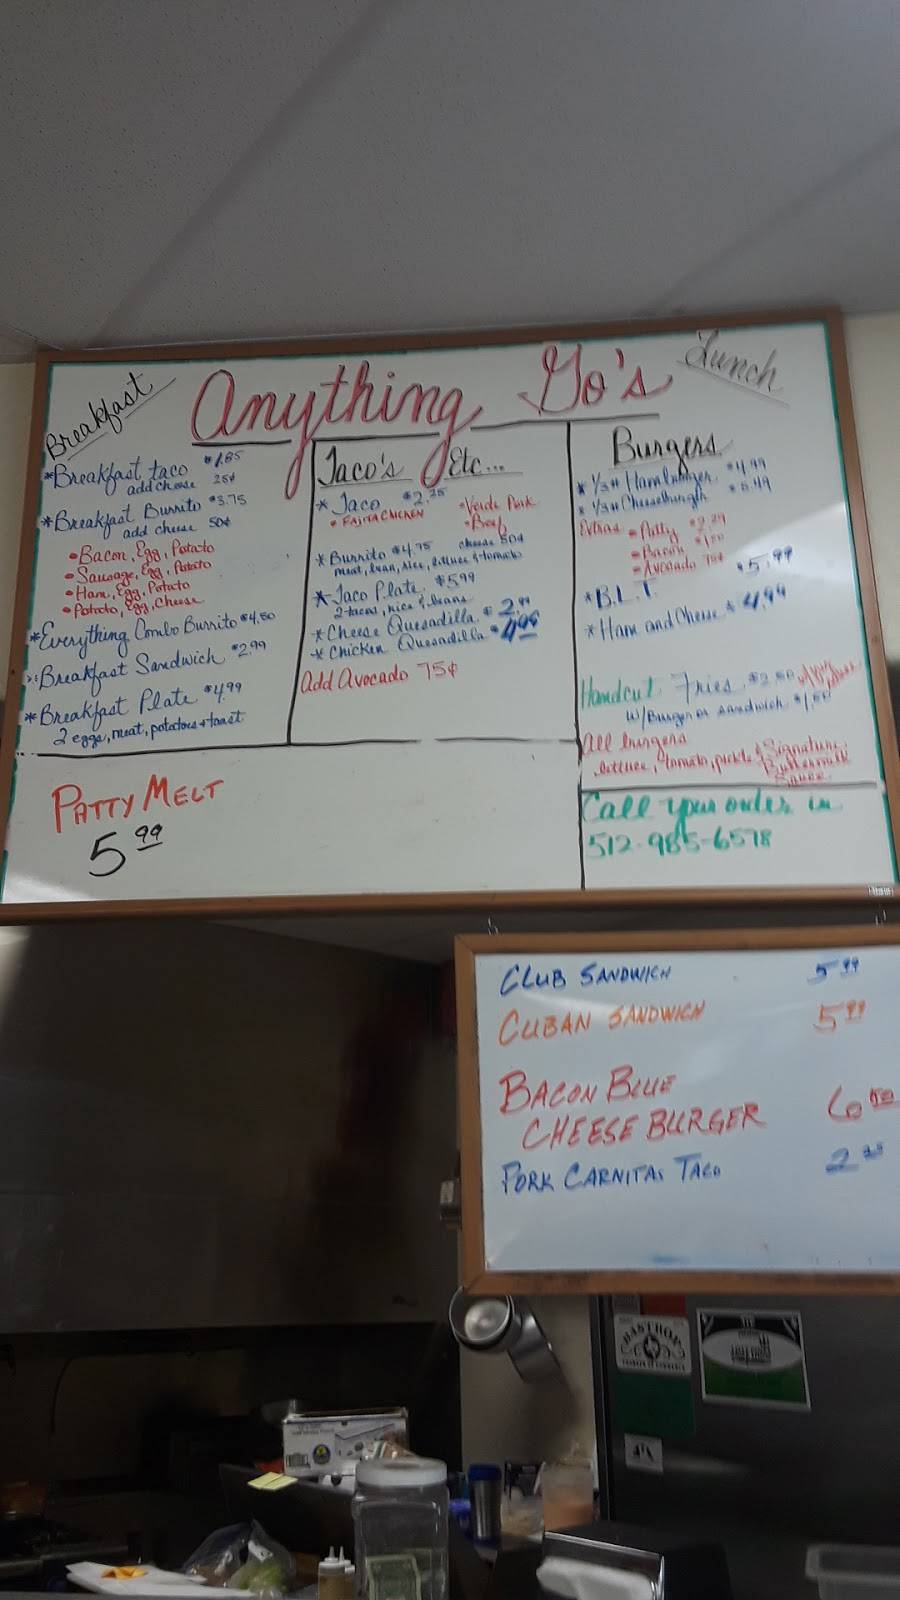 Breakfast
Anything Go's
Lunch
*Breakfast taco $1.85
add cheese 25¢
*Breakfast Burrito $3.75
add cheese 50¢
•Bacon, Egg, Potato
•Sausage, Egg, Potato
•Ham, Egg, Potato
•Potato, Egg, Cheese
*Everything Combo Burrito $4.50
*Breakfast Sandwich $2.99
*Breakfast Plate $4.99
2 eggs, meat, potatoes + toast
Taco's Etc...
*Taco $2.25
•FAJITA CHICKEN
•Verde Pork
•Beef
*Burrito $4.75 cheese 50¢
meat, bean, rice, lettuce + tomato
*Taco Plate $5.99
2 tacos, rice & beans
*Cheese Quesadilla $2.99
*Chicken Quesadilla $4.99
Add Avocado 75¢
Burgers
*1/3# Hamburger $4.99
*1/3# Cheeseburger $5.49
Extras •Patty $2.29
•Bacon $1.50
•Avocado 75¢
*B.L.T. $5.99
*Ham and Cheese $4.99
Handcut Fries $2.50
w/Burger or sandwich $1.50
All burgers
lettuce, tomato, pickle & Signature
Buttermilk
Sauce
PATTY MELT
5.99
Call your order in
512-985-6578
CLUB SANDWICH 5.99
CUBAN SANDWICH 5.99
BACON BLUE
CHEESE BURGER 6.50
PORK CARNITAS TACO 2.25
BASTROP